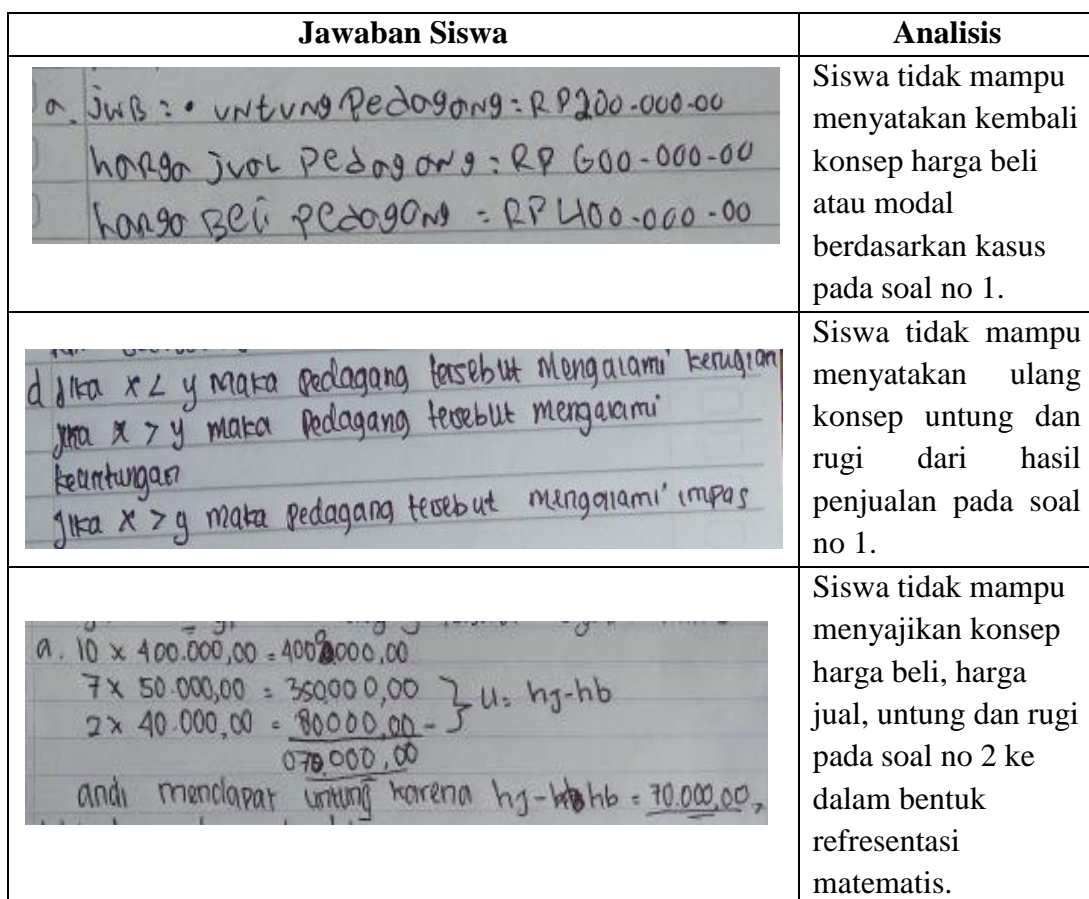 Jawaban Siswa
Analisis
a. JWB : • UNtUNg PedagaNg : RP200-000-00
harga juaL Pedagang : RP 600-000-00
harga Beli Pedagang = RP400-000-00
Siswa tidak mampu
menyatakan kembali
konsep harga beli
atau modal
berdasarkan kasus
pada soal no 1.
d Jika x < y maka pedagang tersebut Mengalami kerugian
Jika x > y maka pedagang tersebut mengalami
keuntungan
Jika x > y maka pedagang tersebut mengalami impas
Siswa tidak mampu
menyatakan ulang
konsep untung dan
rugi dari hasil
penjualan pada soal
no 1.
a. 10 x 400.000,00 = 
7 x 50.000,00 = 350000,00 } U = hj-hb
2 x 40.000,00 = 80000,00 -
070.000,00
andi mendapat untung karena hj- hb = 70.000,00,
Siswa tidak mampu
menyajikan konsep
harga beli, harga
jual, untung dan rugi
pada soal no 2 ke
dalam bentuk
refresentasi
matematis.